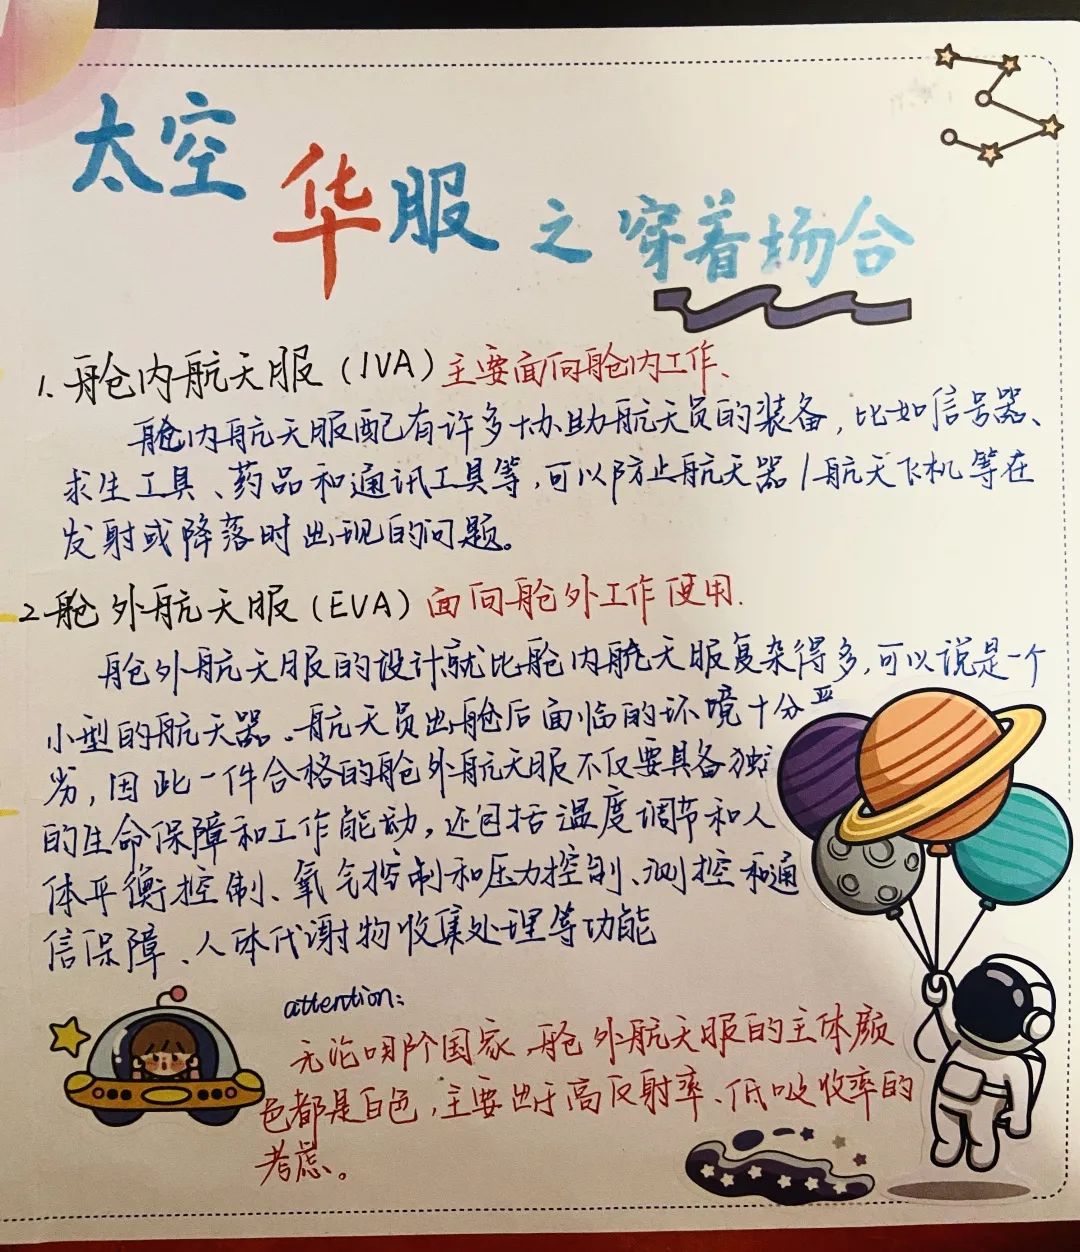 太空华服之穿着场合
1.舱内航天服(IVA)主要面向舱内工作.
舱内航天服配有许多协助航天员的装备,比如信号器、
求生工具、药品和通讯工具等,可以防止航天器/航天飞机等在
发射或降落时出现的问题。
2.舱外航天服(EVA)面向舱外工作使用.
舱外航天服的设计就比舱内航天服复杂得多,可以说是一个
小型的航天器.航天员出舱后面临的环境十分
劣,因此一件合格的舱外航天服不仅要具备独
的生命保障和工作能动,还包括温度调节和人
体平衡控制、氧气控制和压力控制、测控和通
信保障、人体代谢物收集处理等功能
attention:
无论哪个国家,舱外航天服的主体颜
色都是白色,主要出于高反射率、低吸收率的
考虑。